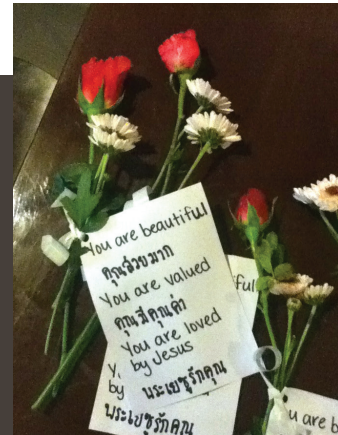 You are beautiful
คุณสวยมาก
You are valued
คุณมีคุณค่า
You are loved
by Jesus
พระเยซูรักคุณ
ful
y.
by
พระเยซูรักคุณ
u are b